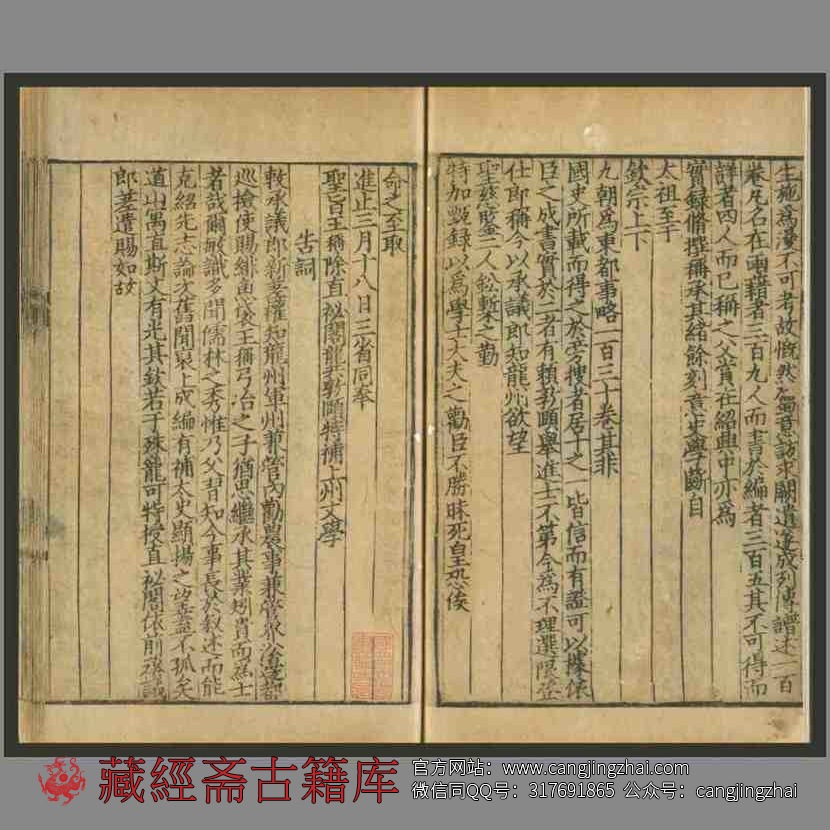 生拖爲漫不可考故慨然屬意訪求闕遺遂成列傳譜述一百
卷凡名在兩籍者三百九人而書於編者三百五其不可得而
詳者四人而已稱之父賞在紹興中亦爲
實録脩撰稱承其緒餘刻意史學斷自
太祖至于
欽宗上下
九朝爲東都事略一百三十卷其非
國史所載而得之於旁搜者居十之一皆信而有證可以據依
臣之成書實於二者有頼敦頤舉進士不第今爲不理選限登
仕郎稱今以承議郎知龍州欲望
聖慈鑒二人鈆槧之勤
特加甄録以爲學士大夫之勸臣不勝昧死皇恐俟
命之至取
進止三月十八日三省同奉
聖旨王稱除直祕閣龔敦頤特補上州文學
告詞
敕承議郎新差權知龍州軍州兼管內勸農事兼管界㳂邊都
巡檢使賜緋魚袋王稱弓冶之子猶思繼承其業矧貴而爲士
者哉爾敏識多聞儒林之秀惟乃父習知今事長於叙述而能
克紹先志論次舊聞裒上成編有補太史顯揚之望蓋不孤矣
道山寓直斯文有光其欽若于殊寵可特授直祕閣依前承議
郎差遣賜如故
藏經斋古籍库
官方网站：www.cangjingzhai.com
微信同QQ号：317691865 公众号：cangjingzhai